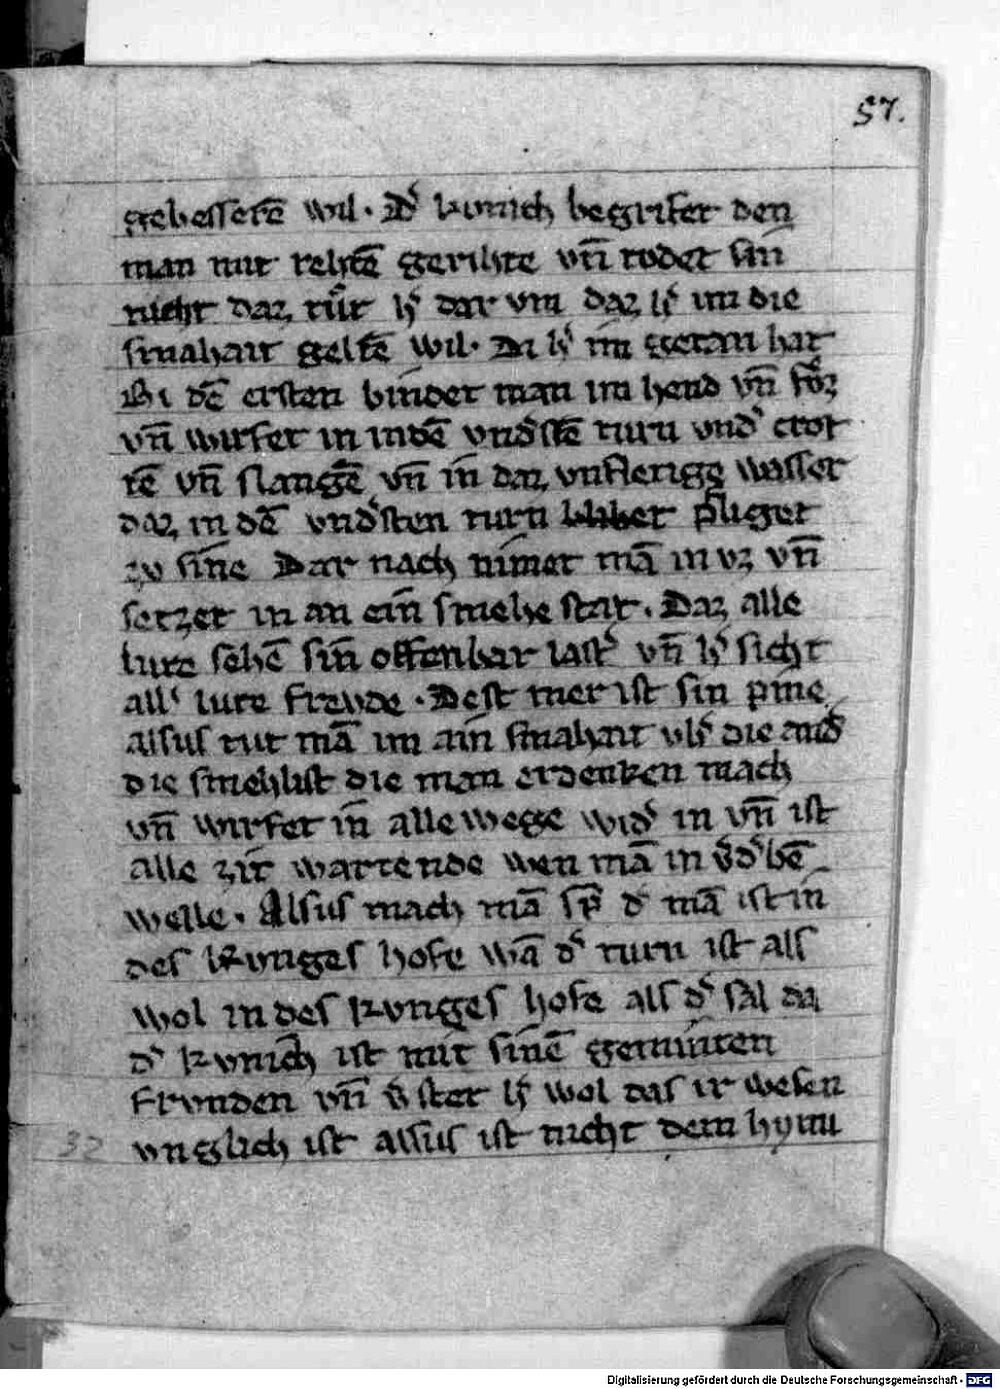 57.
gebesserē wil. Dˢ kvnich begrifet den
man mit rehtē gerihte vn̄ todet sin
nicht daz tůt hˢ dar vm daz hˢ im die
smahait geltē wil. Di hˢ im getan hat
Bi dē ersten bindet man im hend vn̄ fůz
vn̄ wirfet in in dē vndˢstē turn vndˢ crot
tē vn̄ slangē vn̄ in daz vnflerigg wasser
daz in dē vndˢsten turn pfliget
zv sine Dar nach nimet mā in vz vn̄
setzet in an ein smehe stat. Daz alle
lute sehē sin offenbar lastˢ vn̄ hˢ sicht
allˢ lute frevde. Dest mer ist sin pine
alsus tut mā im ain smahait vbˢ die andˢ
die smehlist die man erdenken mach
vn̄ wirfet in alle wege widˢ in vn̄ ist
alle zit wartende wen mā in vˢdˢbē
welle. Alsus mach mā sp̄ dˢ mā ist in
des kvnges hofe wā dˢ turn ist als
wol in des kvnges hofe als dˢ sal da
dˢ kvnich ist mit sinē geminten
frvnden vn̄ vˢstet hˢ wol das ir wesen
vnglich ist alsus ist nicht dem hymi
32
Digitalisierung gefördert durch die Deutsche Forschungsgemeinschaft - DFG